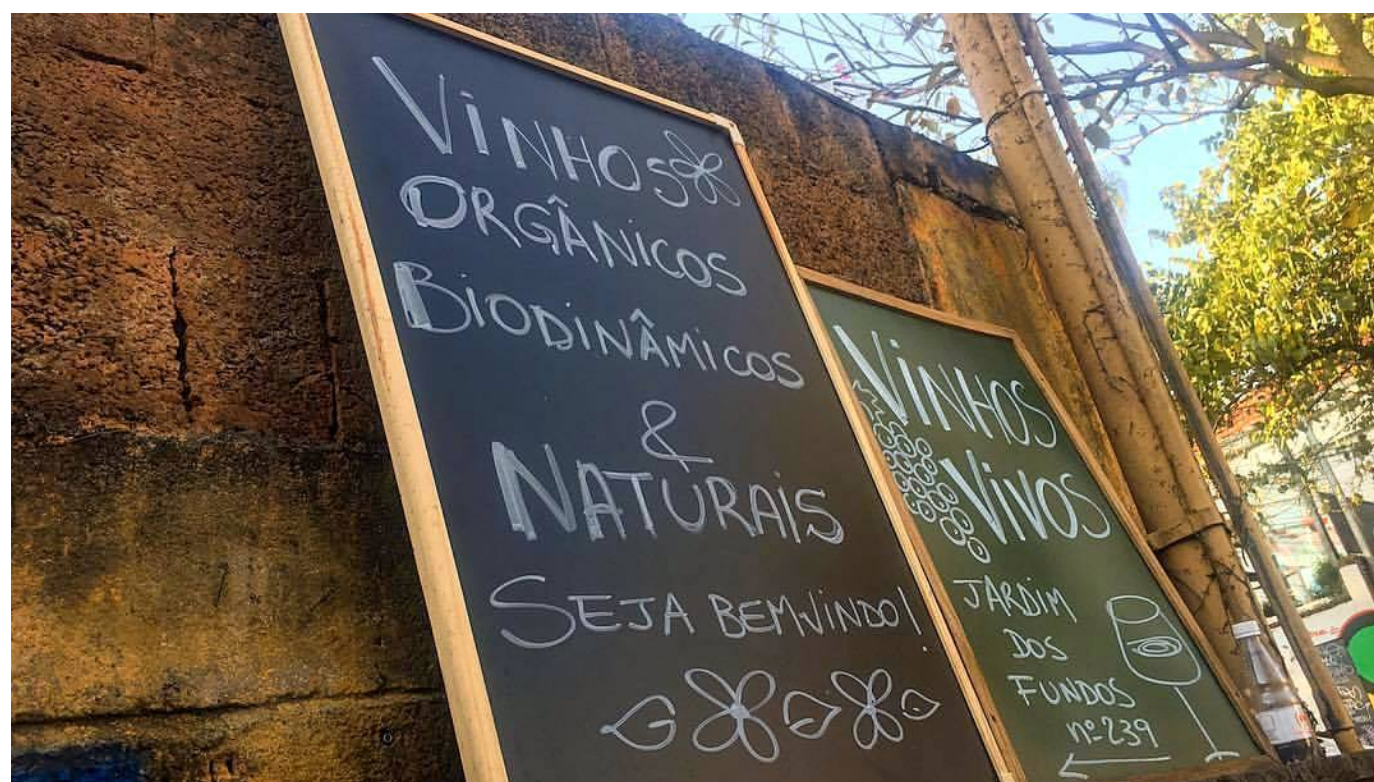 VINHOS
ORGÂNICOS
BIODINÂMICOS
&
NATURAIS
SEJA BEM-VINDO!
VINHOS
VIVOS
JARDIM
DOS
FUNDOS
nº239